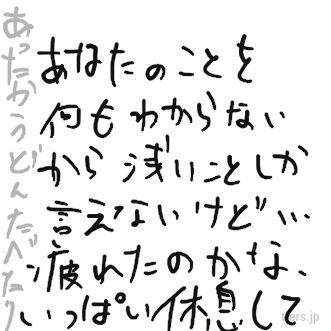 あなたのことを
何もわからない
から浅いことしか
言えないけど...
疲れたのかな、
いっぱい休息して
あったかうどんたべたり